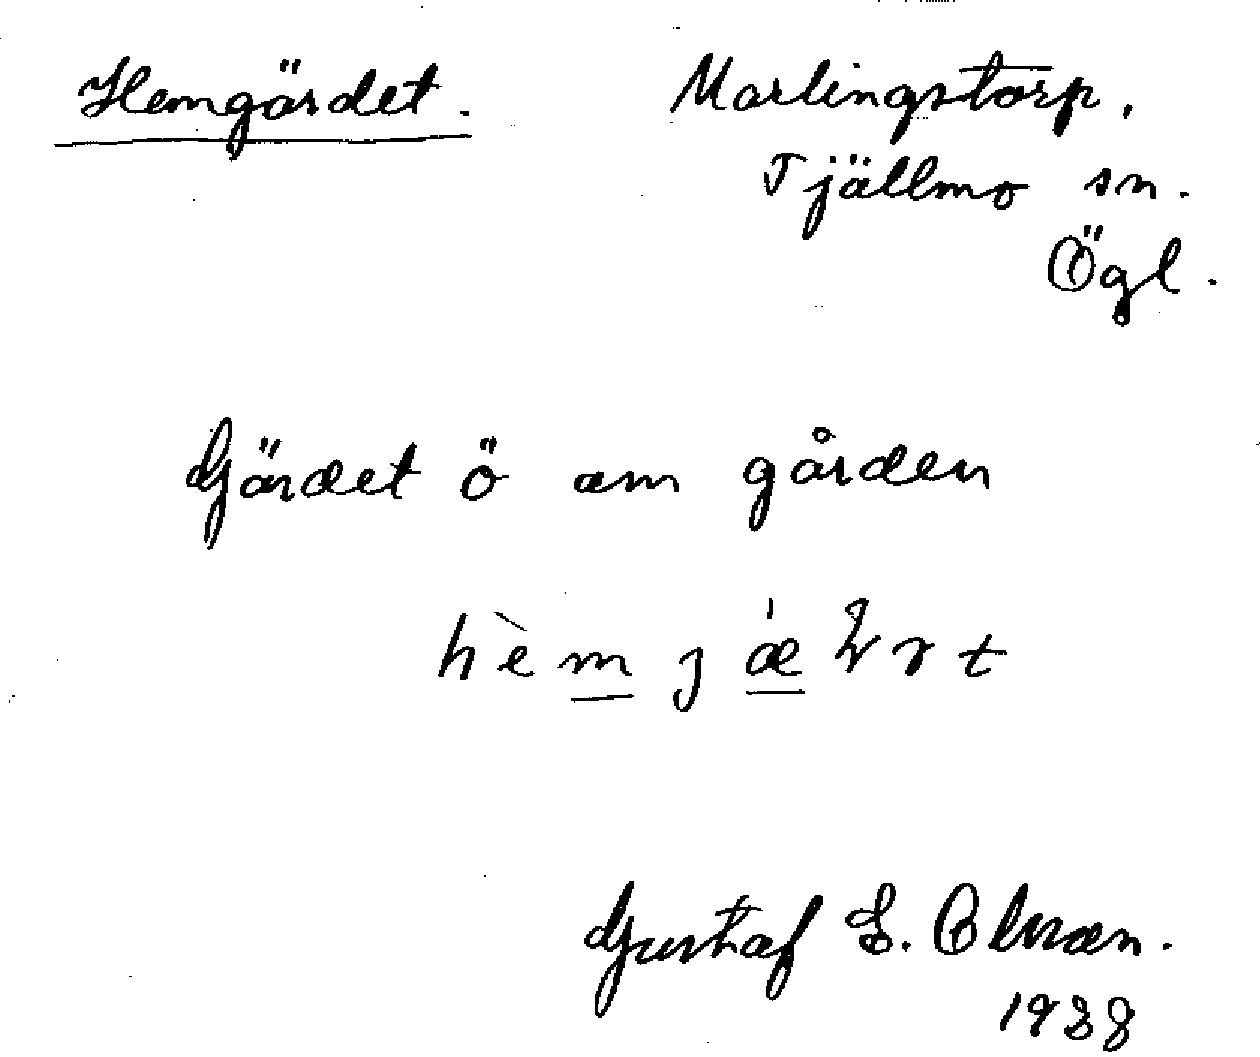 Hemgärdet.
Marlingstorp,
Tjällmo sn.
Ögl.
Gärdet ö am gården
Gustaf E. Olsson.
1938